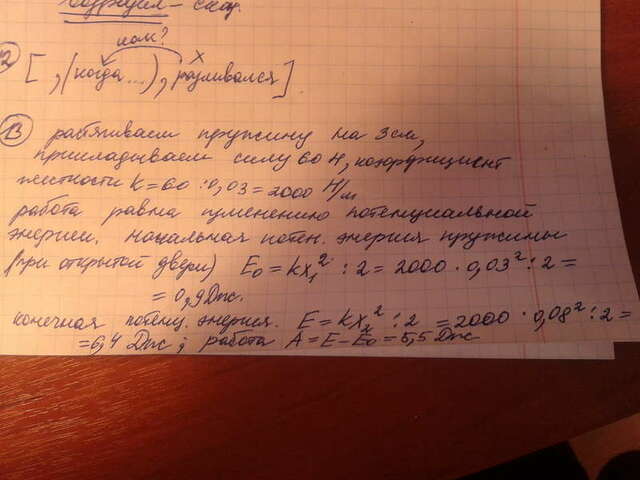 когда?
12 [ , (когда...), разливался]
13 растягиваем пружину на 3 см,
прикладываем силу 60 Н, коэффициент
жесткости k = 60 : 0,03 = 2000 Н/м
работа равна изменению потенциальной
энергии. Начальная потен. энергия пружины
(при открытой двери) E₀ = kx₁² : 2 = 2000 · 0,03² : 2 =
= 0,9 Дж.
конечная потенц. энергия. E = kx₂² : 2 = 2000 · 0,08² : 2 =
= 6,4 Дж ; работа A = E - E₀ = 5,5 Дж